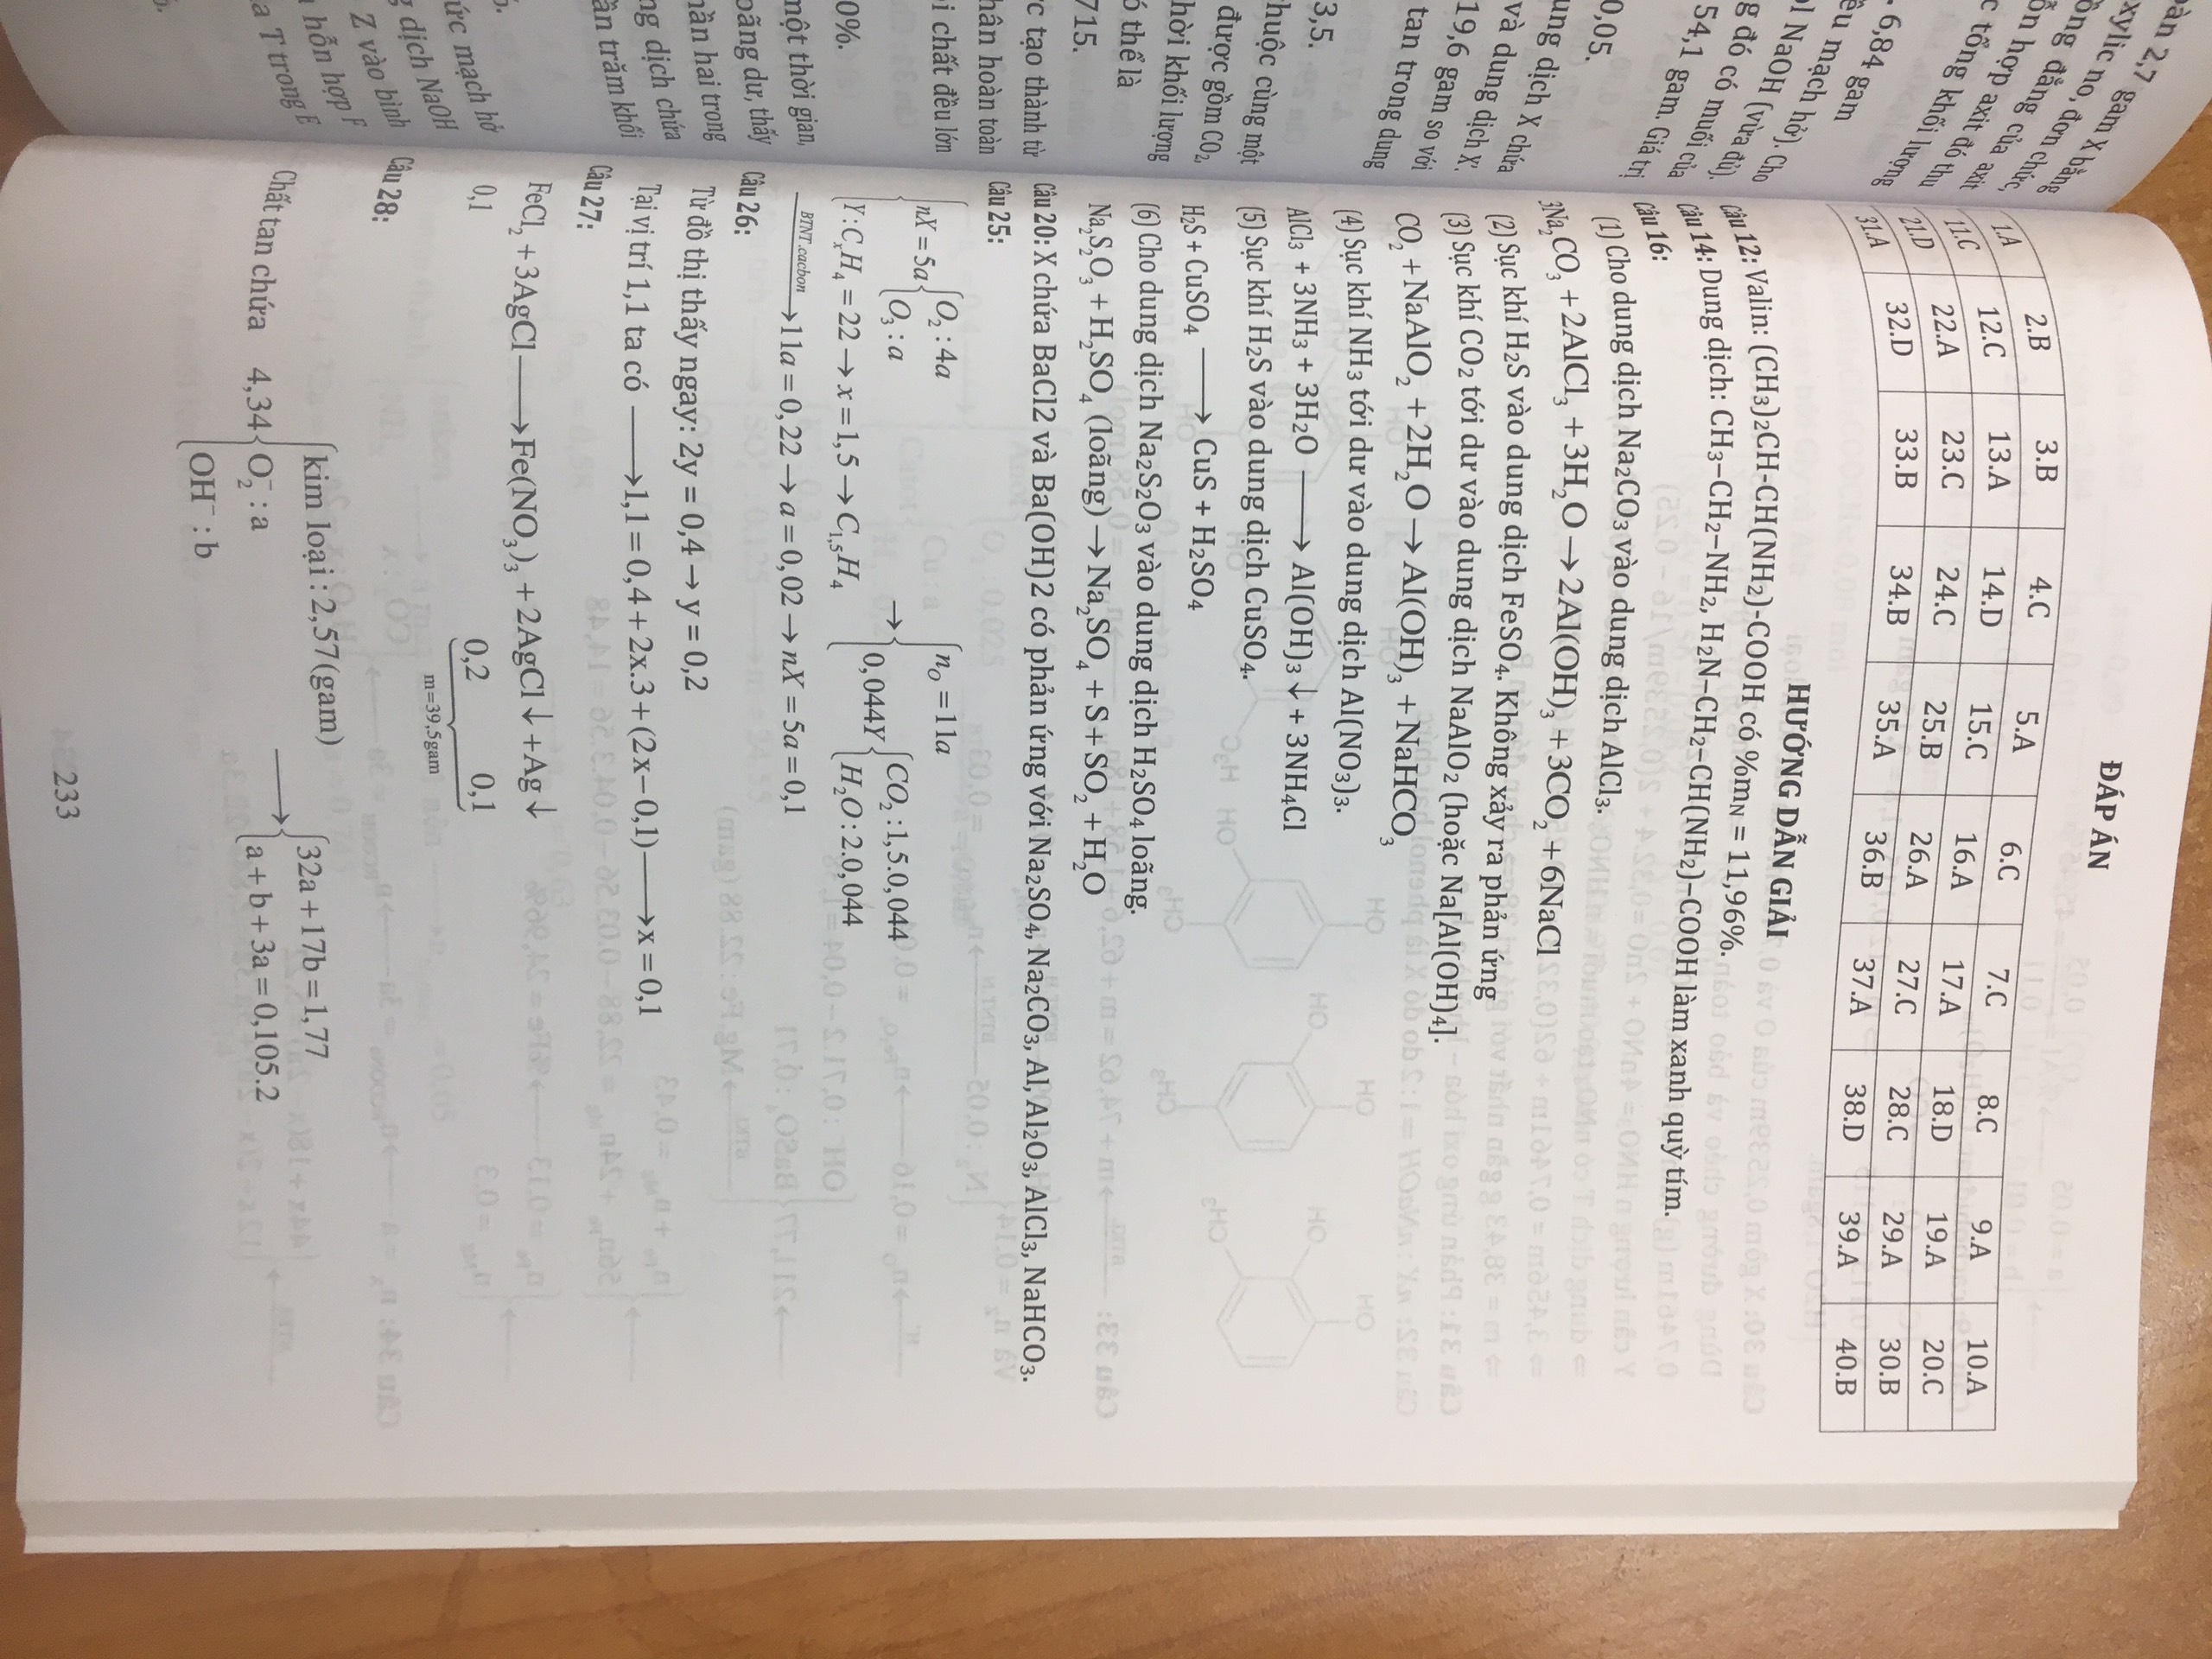 ĐÁP ÁN
1.A 2.B 3.B 4.C 5.A 6.C 7.C 8.C 9.A 10.A
11.C 12.C 13.A 14.D 15.C 16.A 17.A 18.D 19.A 20.C
21.D 22.A 23.C 24.C 25.B 26.A 27.C 28.C 29.A 30.B
31.A 32.D 33.B 34.B 35.A 36.B 37.A 38.D 39.A 40.B
HƯỚNG DẪN GIẢI
Câu 12: Valin: (CH₃)₂CH-CH(NH₂)-COOH có %m_N = 11,96%.
Câu 14: Dung dịch: CH₃–CH₂–NH₂, H₂N–CH₂–CH(NH₂)–COOH làm xanh quỳ tím.
Câu 16:
(1) Cho dung dịch Na₂CO₃ vào dung dịch AlCl₃.
3Na₂CO₃ + 2AlCl₃ + 3H₂O → 2Al(OH)₃ + 3CO₂ + 6NaCl
(2) Sục khí H₂S vào dung dịch FeSO₄. Không xảy ra phản ứng
(3) Sục khí CO₂ tới dư vào dung dịch NaAlO₂ (hoặc Na[Al(OH)₄].
CO₂ + NaAlO₂ + 2H₂O → Al(OH)₃ + NaHCO₃
(4) Sục khí NH₃ tới dư vào dung dịch Al(NO₃)₃.
AlCl₃ + 3NH₃ + 3H₂O ⟶ Al(OH)₃↓ + 3NH₄Cl
(5) Sục khí H₂S vào dung dịch CuSO₄.
H₂S + CuSO₄ ⟶ CuS + H₂SO₄
(6) Cho dung dịch Na₂S₂O₃ vào dung dịch H₂SO₄ loãng.
Na₂S₂O₃ + H₂SO₄ (loãng) → Na₂SO₄ + S + SO₂ + H₂O
Câu 20: X chứa BaCl2 và Ba(OH)2 có phản ứng với Na₂SO₄, Na₂CO₃, Al, Al₂O₃, AlCl₃, NaHCO₃.
Câu 25:
{nX = 5a {O₂ : 4a
O₃ : a
Y : CₓH₄ = 22 → x = 1,5 → C₁,₅H₄
→ {n_O = 11a
0,044Y {CO₂ : 1,5.0,044
H₂O : 2.0,044
BTNT.cacbon ⟶ 11a = 0,22 → a = 0,02 → nX = 5a = 0,1
Câu 26:
Từ đồ thị thấy ngay: 2y = 0,4 → y = 0,2
Tại vị trí 1,1 ta có ⟶ 1,1 = 0,4 + 2x.3 + (2x – 0,1) ⟶ x = 0,1
Câu 27:
FeCl₂ + 3AgCl ⟶ Fe(NO₃)₃ + 2AgCl ↓ + Ag ↓
0,1 0,2 0,1
m=39,5gam
Câu 28:
Chất tan chứa 4,34 {kim loại : 2,57(gam)
O₂⁻ : a
OH⁻ : b
⟶ {32a + 17b = 1,77
a + b + 3a = 0,105.2
233
oàn 2,7 gam X bằng
xylic no, đơn chức,
ồng đẳng của axit
ỗn hợp axit đó thu
c tổng khối lượng
6,84 gam
ều mạch hở). Cho
ol NaOH (vừa đủ).
g đó có muối của
54,1 gam. Giá trị
0,05.
ung dịch X chứa
và dung dịch X'.
19,6 gam so với
tan trong dung
3,5.
huộc cùng một
được gồm CO₂,
hời khối lượng
ó thể là
715.
rc tạo thành từ
hân hoàn toàn
i chất đều lớn
0%.
một thời gian,
oãng dư, thấy
hần hai trong
ng dịch chứa
ần trăm khối
ức mạch hở
g dịch NaOH
Z vào bình
hỗn hợp F
a T trong E